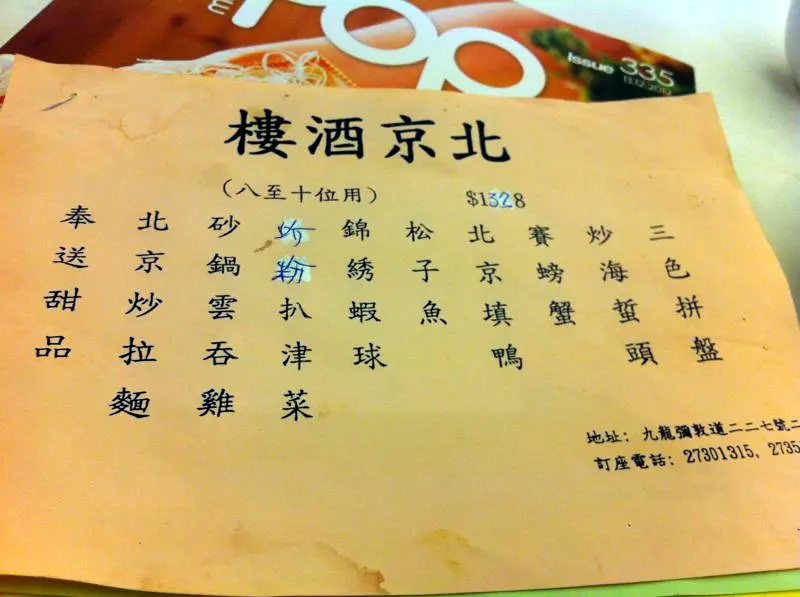 POP
issue 335
13.12.2012
北京酒樓
(八至十位用)
$1328
三色拼盤
炒海蜇頭
賽螃蟹
北京填鴨
松子魚
錦綉蝦球
蚧粉扒津菜
砂鍋雲吞雞
北京炒拉麵
奉送甜品
地址: 九龍彌敦道二二七號二
訂座電話: 27301315, 2735